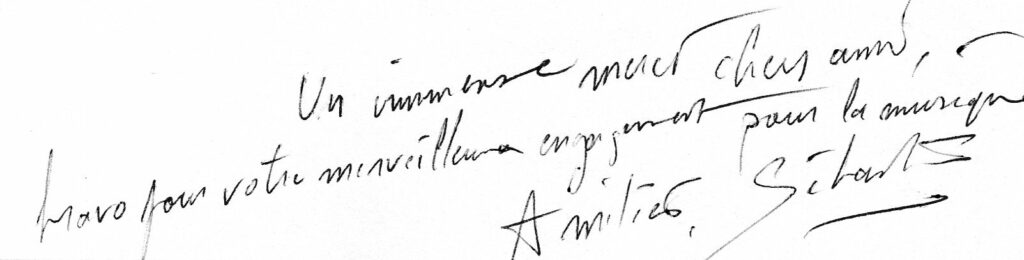 Un immense merci chers amis,
bravo pour votre merveilleux engagement pour la musique
Amitiés,